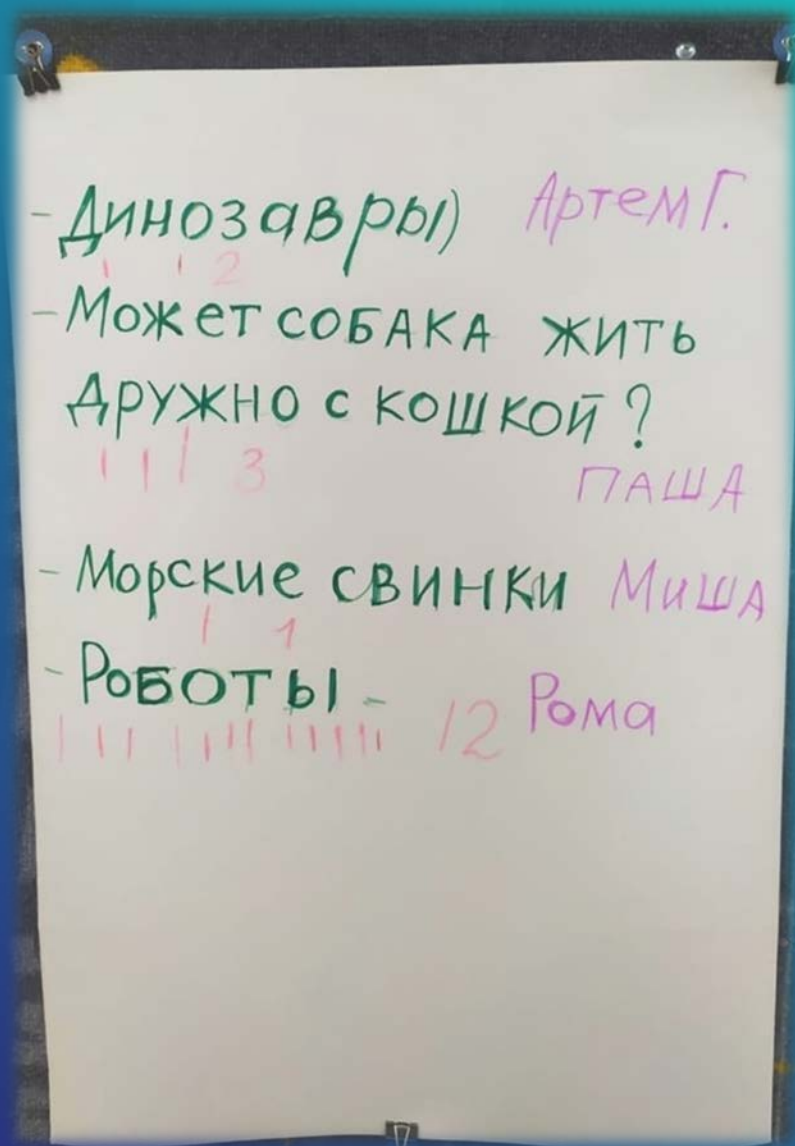 - Динозавры) Артем Г.
| | 2
- Может СОБАКА ЖИТЬ
ДРУЖНО С КОШКОЙ?
| | | 3
ПАША
- Морские СВИНКИ Миша
| 1
- РоБОТЫ - Рома
| | | | | | | | | | | | | 12